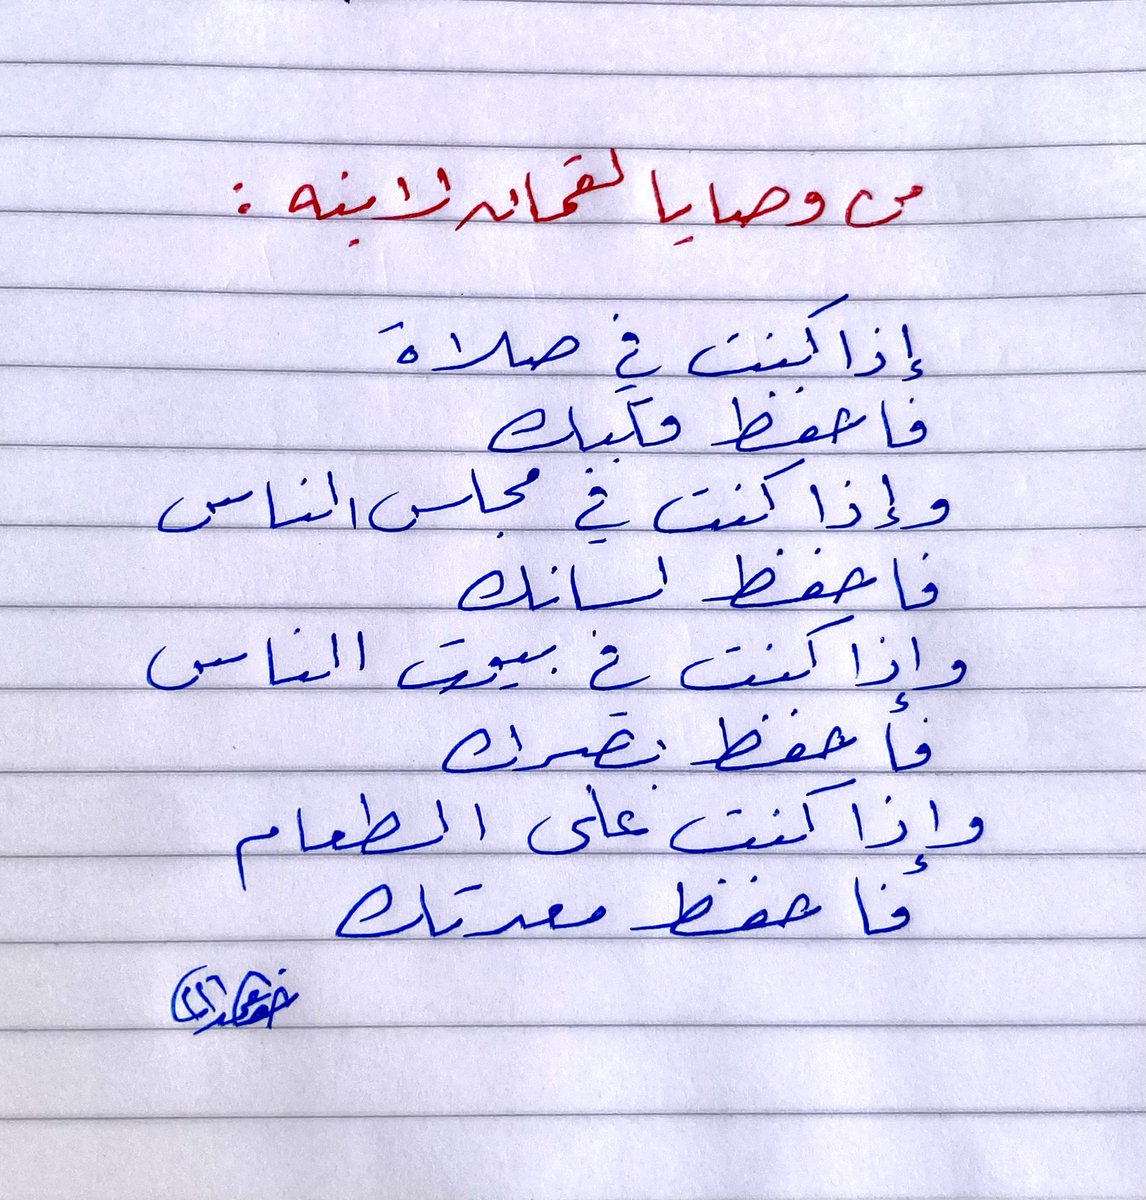 من وصايا لقمان لابنه :
إذا كنت في صلاة
فاحفظ قلبك
وإذا كنت في مجلس الناس
فاحفظ لسانك
وإذا كنت في بيوت الناس
فاحفظ بصرك
وإذا كنت على الطعام
فاحفظ معدتك